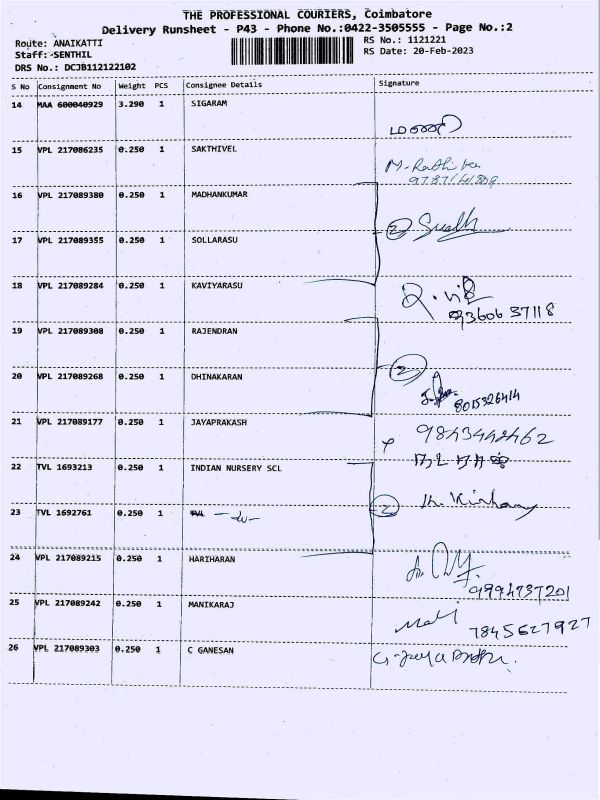 THE PROFESSIONAL COURIERS, Coimbatore
Delivery Runsheet - P43 - Phone No.:0422-3505555 - Page No.:2
Route: ANAIKATTI
RS No.: 1121221
Staff: SENTHIL
RS Date: 20-Feb-2023
DRS No.: DCJB112122102
S No Consignment No Weight PCS Consignee Details Signature
14 MAA 600040929 3.290 1 SIGARAM
15 VPL 217086235 0.250 1 SAKTHIVEL
16 VPL 217089380 0.250 1 MADHANKUMAR
②
17 VPL 217089355 0.250 1 SOLLARASU
18 VPL 217089284 0.250 1 KAVIYARASU
93606 37118
19 VPL 217089308 0.250 1 RAJENDRAN
②
20 VPL 217089268 0.250 1 DHINAKARAN
8015326414
21 VPL 217089177 0.250 1 JAYAPRAKASH
22 TVL 1693213 0.250 1 INDIAN NURSERY SCL
②
23 TVL 1692761 0.250 1
24 VPL 217089215 0.250 1 HARIHARAN
9994737201
25 VPL 217089242 0.250 1 MANIKARAJ
7845627927
26 VPL 217089303 0.250 1 C GANESAN